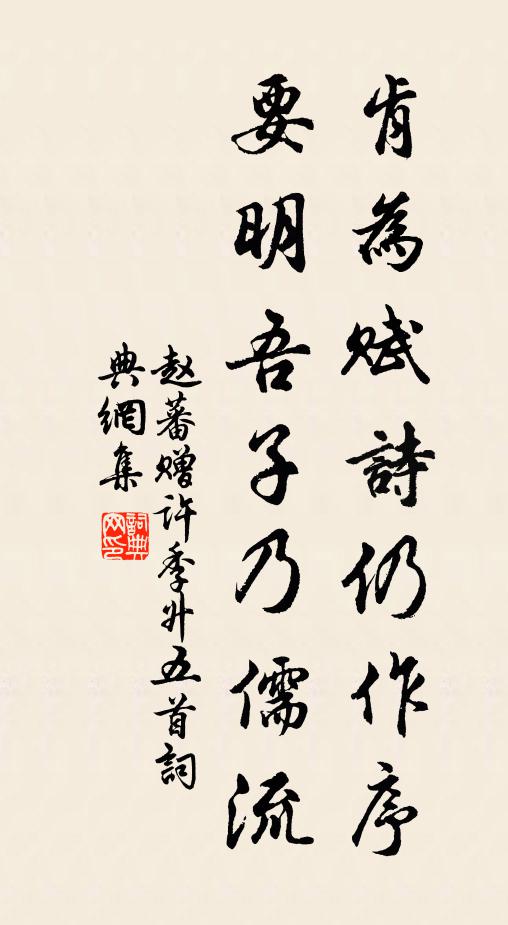 肯為賦詩仍作序
要明吾子乃儒流
赵蕃赠许季升五首詞
典網集
詞典網印